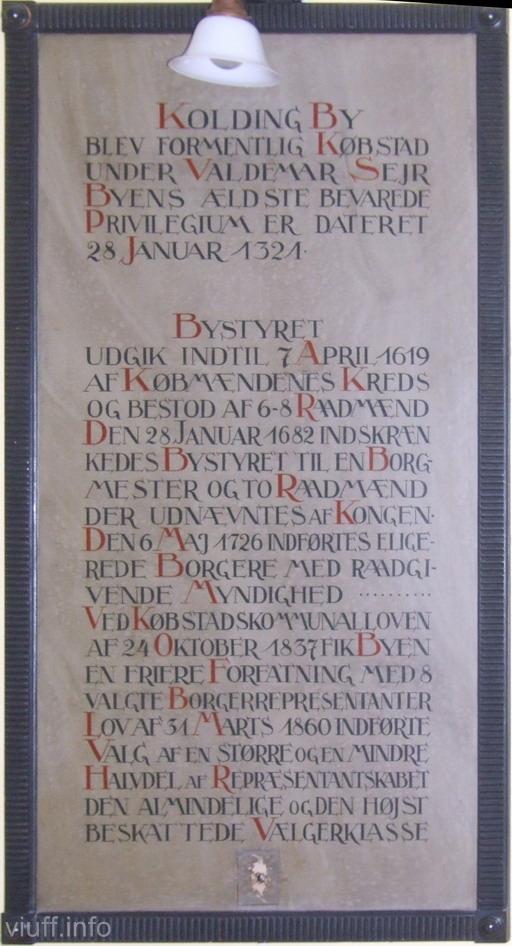 KOLDING BY
BLEV FORMENTLIG KØBSTAD
UNDER VALDEMAR SEJR
BYENS ÆLDSTE BEVAREDE
PRIVILEGIUM ER DATERET
28 JANUAR 1321.
BYSTYRET
UDGIK INDTIL 7 APRIL 1619
AF KØBMÆNDENES KREDS
OG BESTOD AF 6-8 RAADMÆND
DEN 28 JANUAR 1682 INDSKRÆN
KEDES BYSTYRET TIL EN BORG-
MESTER OG TO RAADMÆND
DER UDNÆVNTES AF KONGEN.
DEN 6 MAJ 1726 INDFØRTES ELIGE-
REDE BORGERE MED RAADGI-
VENDE MYNDIGHED ..........
VED KØBSTADSKOMMUNALLOVEN
AF 24 OKTOBER 1837 FIK BYEN
EN FRIERE FORFATNING MED 8
VALGTE BORGERREPRESENTANTER
LOV AF 31 MARTS 1860 INDFØRTE
VALG AF EN STØRRE OG EN MINDRE
HALVDEL AF REPRÆSENTANTSKABET
DEN ALMINDELIGE OG DEN HØJST
BESKATTEDE VÆLGERKLASSE
viuff.info